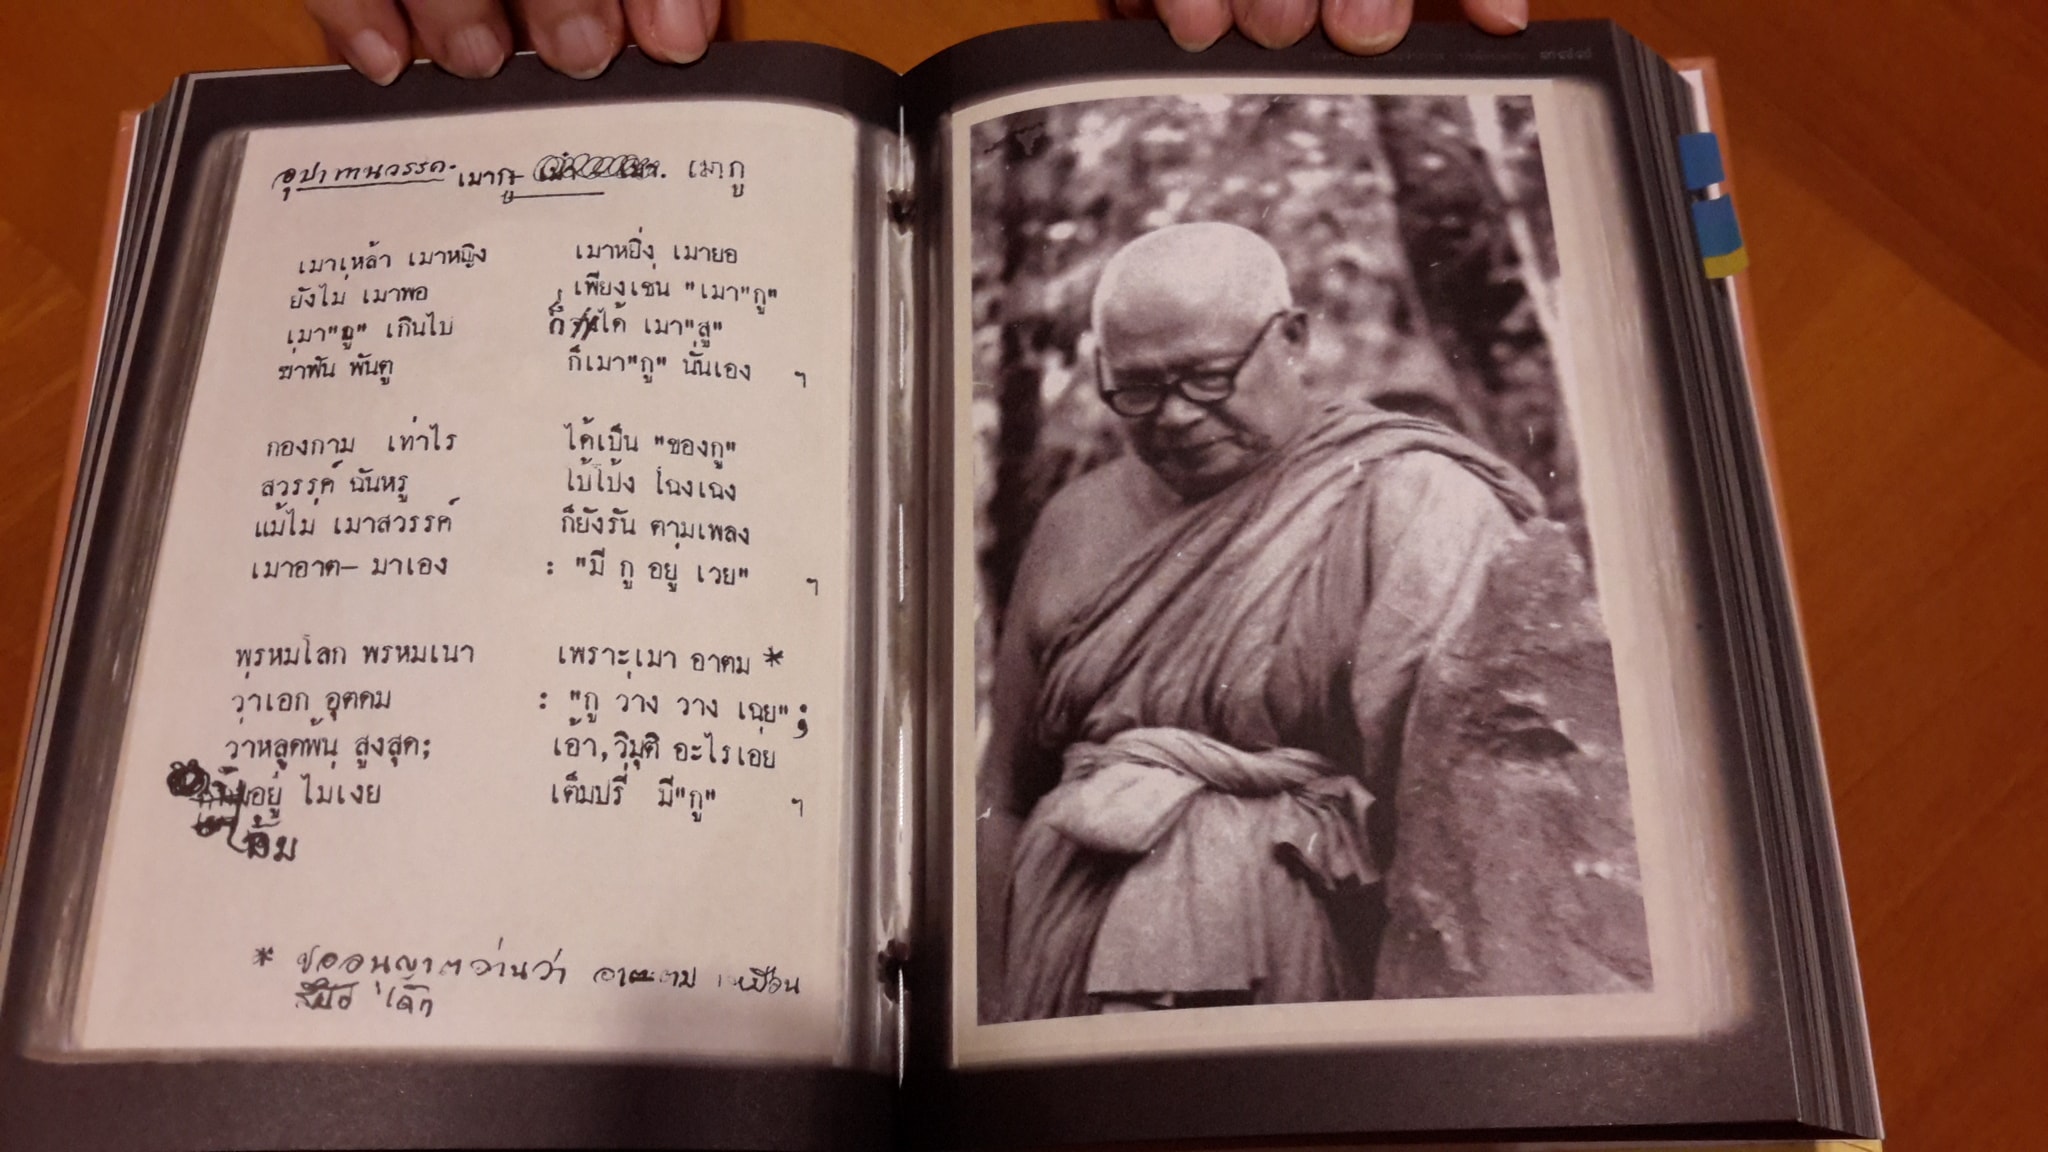 อุปาทานวรรค. เมากู เมากู
เมาเหล้า เมาหญิง เมาหยิ่ง เมายอ
ยังไม่ เมาพอ เพียงเช่น "เมา"กู"
เมา"กู" เกินไป ก็ได้ เมา"สู"
ฆ่าฟัน พันตู ก็เมา"กู" นั่นเอง ฯ
กองกาม เท่าไร ได้เป็น "ของกู"
สวรรค์ ฉันหรู โป้โป้ง โฉงเฉง
แม้ไม่ เมาสวรรค์ ก็ยังรัน ตามเพลง
เมาอาต– มาเอง : "มี กู อยู่ เวย" ฯ
พรหมโลก พรหมเนา เพราะเมา อาตม *
ว่าเอก อุตตม : "กู ว่าง วาง เฉย" ;
ว่าหลุดพ้น สูงสุด; เอ้า, วิมุติ อะไรเอ่ย
งั้มอยู่ ไม่เงย เต็มปรี่ มี"กู" ฯ
* ขออนุญาตอ่านว่า อาตะตม เหมือน